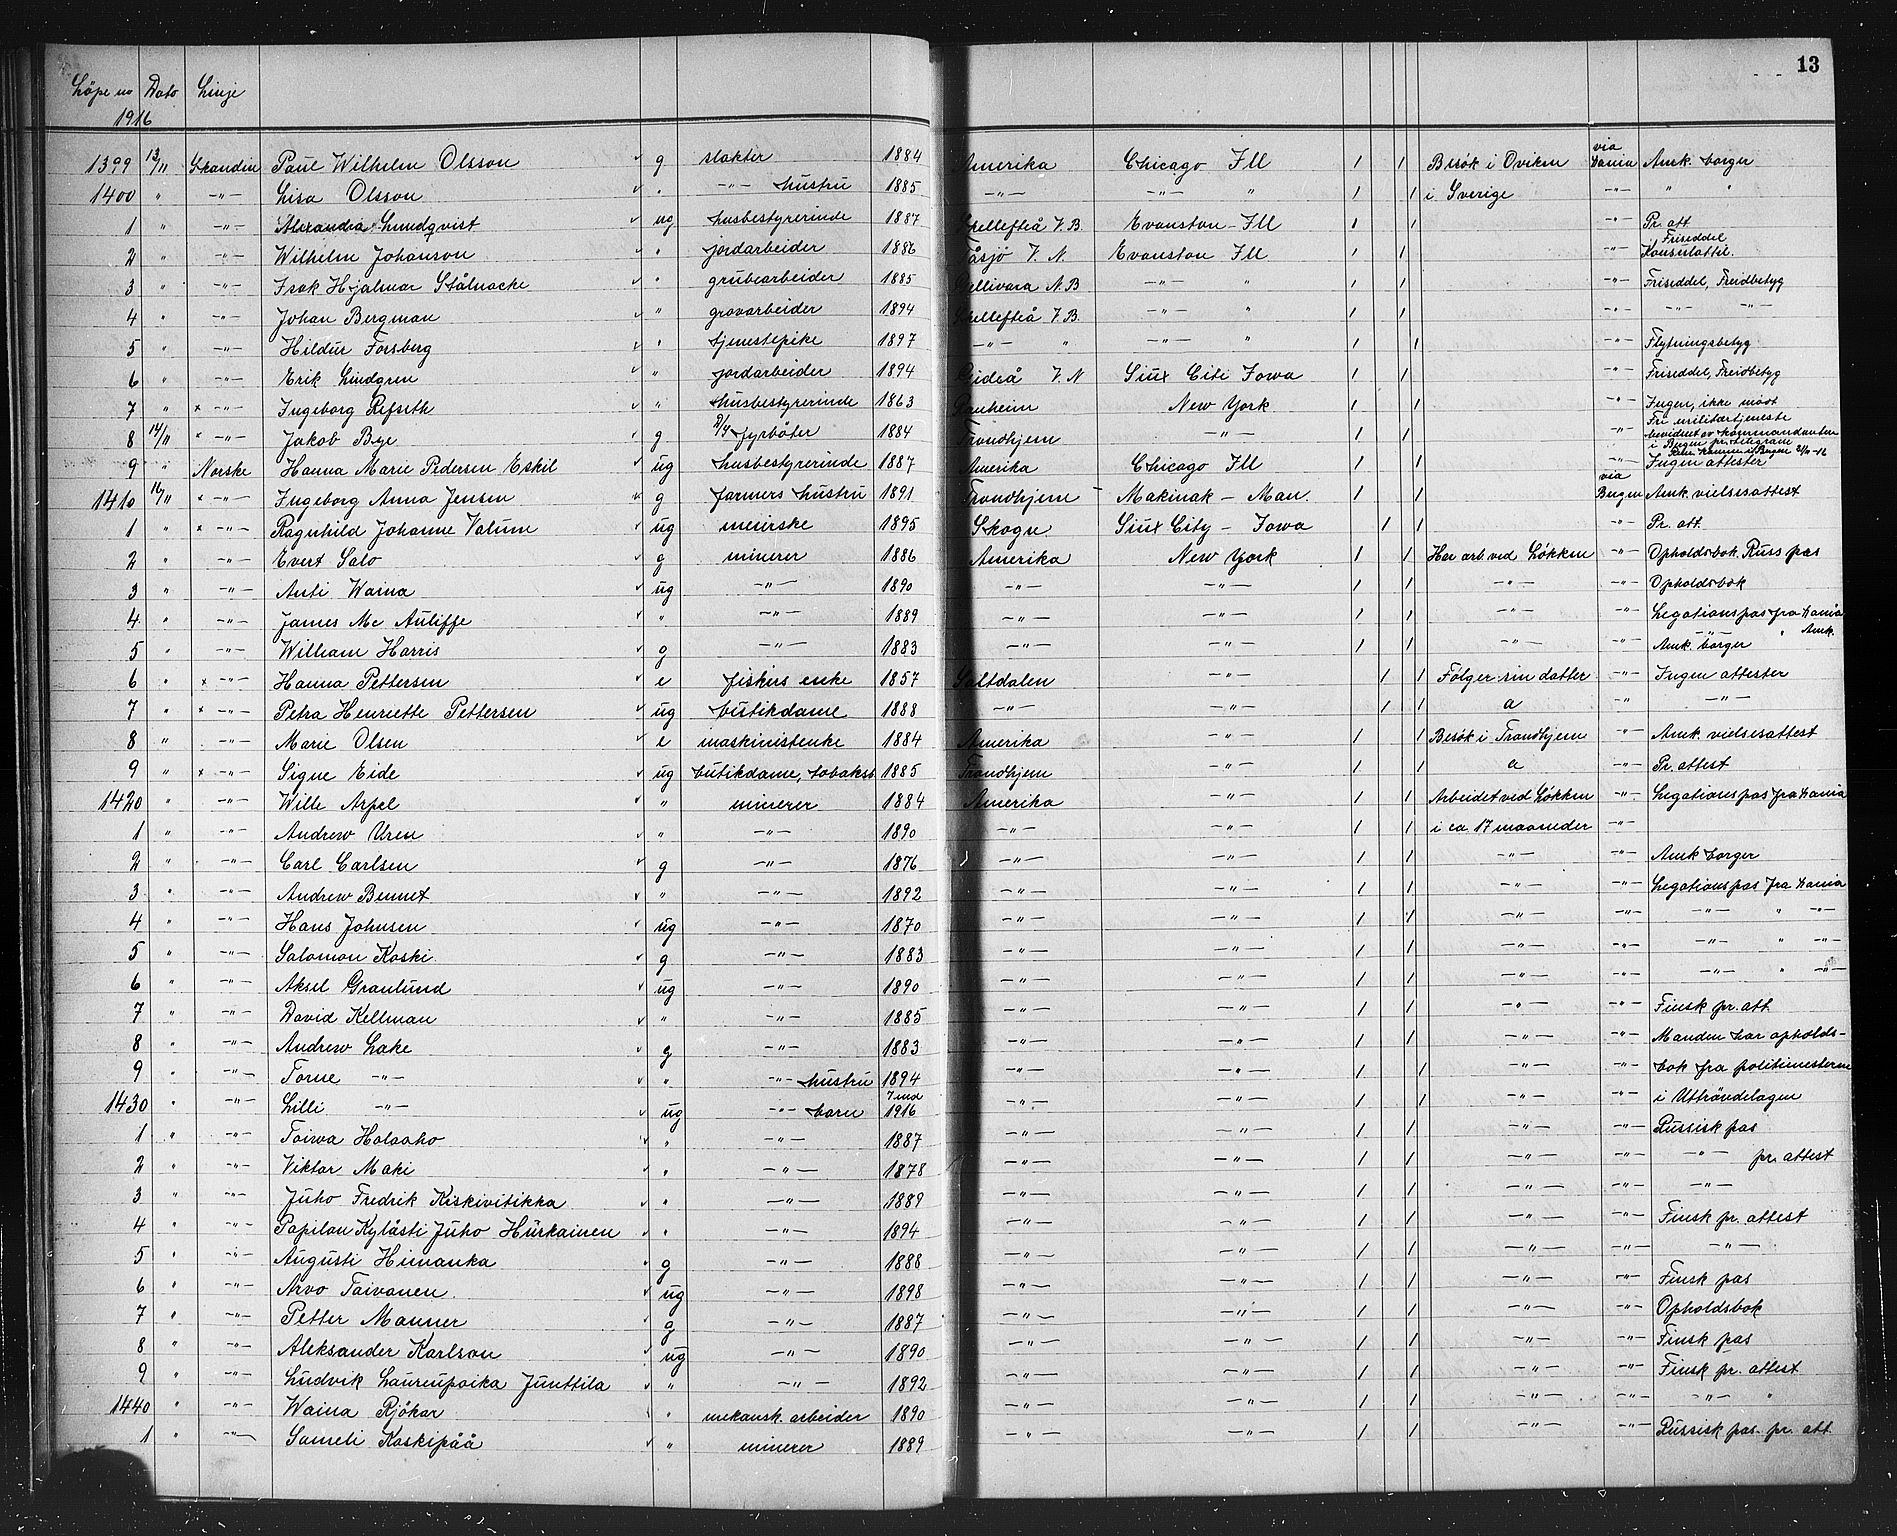 13
Löpe no Dato Linje
1916
1399 13/11 Skandin Paul Wilhelm Olsson g slakter 1884 Amerika Chicago Ill 1 1 Besök i Oviken via Kania Amk. borger
1400 " -"- Lisa Olsson " -"- hustru 1885 -"- -"- " 1 1 i Sverige -"- " "
1 " -"- Alexandra Lundqvist ug husbestyrerinde 1887 Skellefteå V.B. Evanston Ill 1 1 -"- Pr. att.
2 " -"- Wilhelm Johanson " jordarbeider 1886 Tåsjö V.N. Evanston Ill 1 1 -"- Friseddel Konsulattil.
3 " -"- Isak Hjalmar Stålnacke " grubearbeider 1885 Gellivara N.B -"- " 1 1 -"- Friseddel, Freidbetyg
4 " -"- Johan Bergman " gravarbeider 1894 Skellefteå V.B. -"- " 1 1 -"- -"- -"-
5 " -"- Hildur Forsberg " tjenestepike 1897 -"- " -"- " 1 1 -"- Flytningsbetyg
6 " -"- Erik Lindgren " jordarbeider 1894 Gideå V.N Siux Citi Iowa 1 1 -"- Friseddel, Freidbetyg
7 " x -"- Ingeborg Refseth " husbestyrerinde 1863 Ranheim New York 1 1 -"- Ingen, ikke mödt
8 14/11 x -"- Jakob Bye g D/S fyrböter 1884 Trondhjem -"- 1 1 -"- Fri militærtjeneste bevidnet av kommandanten i Bergen pr. telegram
9 " Norske Hanna Marie Pedersen Eskil ug husbestyrerinde 1887 Amerika Chicago Ill 1 1 -"- Ingen attester
1410 16/11 x -"- Ingeborg Anna Jensen g farmers hustru 1891 Trondhjem Makinak - Man. 1 1 via Bergen Amk. vielsesattest
1 " x -"- Ragnhild Johanne Valum ug meierske 1895 Skogn Siux City - Iowa 1 1 -"- Pr. att.
2 " -"- Evert Salo g minerer 1886 Amerika New York 1 1 Har arb. ved Løkken -"- Opholdsbok. Russ pas
3 " -"- Anti Waina ug -"- 1890 -"- -"- 1 1 -"- -"- Opholdsbok
4 " -"- James Mc Auliffe " -"- 1889 -"- -"- 1 1 -"- -"- Legationspas fra Kania
5 " -"- William Harris g -"- 1883 -"- -"- 1 1 -"- -"- -"- " Amk. Amk. borger
6 " x -"- Hanna Pettersen e fiskers enke 1857 Saltdalen -"- 1 1 Fölger sin datter -"- Ingen attester
7 " x -"- Petra Henriette Pettersen ug butikdame 1888 -"- -"- 1 1 a -"- -"-
8 " -"- Marie Olsen e maskinistenke 1884 Amerika -"- 1 1 Besök i Trondhjem -"- Amk. vielsesattest
9 " x -"- Signe Eide ug butikdame, tobaksb. 1885 Trondhjem -"- 1 1 a -"- Pr. attest
1420 " -"- Wille Arpel " minerer 1884 Amerika -"- 1 1 Arbeidet ved Løkken -"- Legationspas fra Kania
1 " -"- Andrew Uren " -"- 1890 -"- -"- 1 1 i ca 17 maaneder -"-
2 " -"- Carl Carlsen g -"- 1876 -"- -"- 1 1 -"- -"- Amk borger
3 " -"- Andrew Bennet " -"- 1892 -"- -"- 1 1 -"- -"- Legationspas fra Kania
4 " -"- Hans Johnsen ug -"- 1870 -"- -"- 1 1 -"- -"- -"- " -"-
5 " -"- Salomon Koski g -"- 1883 -"- -"- 1 1 -"- -"- -"- " -"-
6 " -"- Aksel Granlund ug -"- 1890 -"- -"- 1 1 -"- -"- -"- " -"-
7 " -"- David Kellman " -"- 1885 -"- -"- 1 1 -"- -"- Finsk pr. att.
8 " -"- Andrew Lake g -"- 1883 -"- -"- 1 1 -"- -"- Manden har opholds-
9 " -"- Torne -"- " -"- hustru 1894 -"- -"- 1 1 -"- -"- bok fra politimesteren
1430 " -"- Lilli -"- ug -"- barn 7 md 1916 -"- -"- 1 1 -"- -"- i Uttröndelagen
1 " -"- Toiwa Holaaho " -"- 1887 -"- -"- 1 1 -"- -"- Russisk pas
2 " -"- Viktor Maki " -"- 1878 -"- -"- 1 1 -"- -"- -"- pr. attest
3 " -"- Juho Fredrik Kiskivitikka " -"- 1889 -"- -"- 1 1 -"- -"- -"-
4 " -"- Papilan Kylästi Juho Hurkainen " -"- 1894 -"- -"- 1 1 -"- -"- Finsk pr. attest
5 " -"- Augusti Himanka g -"- 1888 -"- -"- 1 1 -"- -"- -"-
6 " -"- Arvo Toivonen ug -"- 1898 -"- -"- 1 1 -"- -"- Finsk pas
7 " -"- Petter Manner g -"- 1887 -"- -"- 1 1 -"- -"- Opholdsbok
8 " -"- Aleksander Karlson ug -"- 1890 -"- -"- 1 1 -"- -"- Finsk pas
9 " -"- Ludvik Laurenpoika Junttila " -"- 1892 -"- -"- 1 1 -"- -"- Finsk pr. attest
1440 " -"- Waina Rjökar " mekansk. arbeider 1890 -"- -"- 1 1 -"- -"- -"- "
1 " -"- Sameli Koskipää " minerer 1889 -"- -"- 1 1 -"- -"- Russisk pas. pr. att